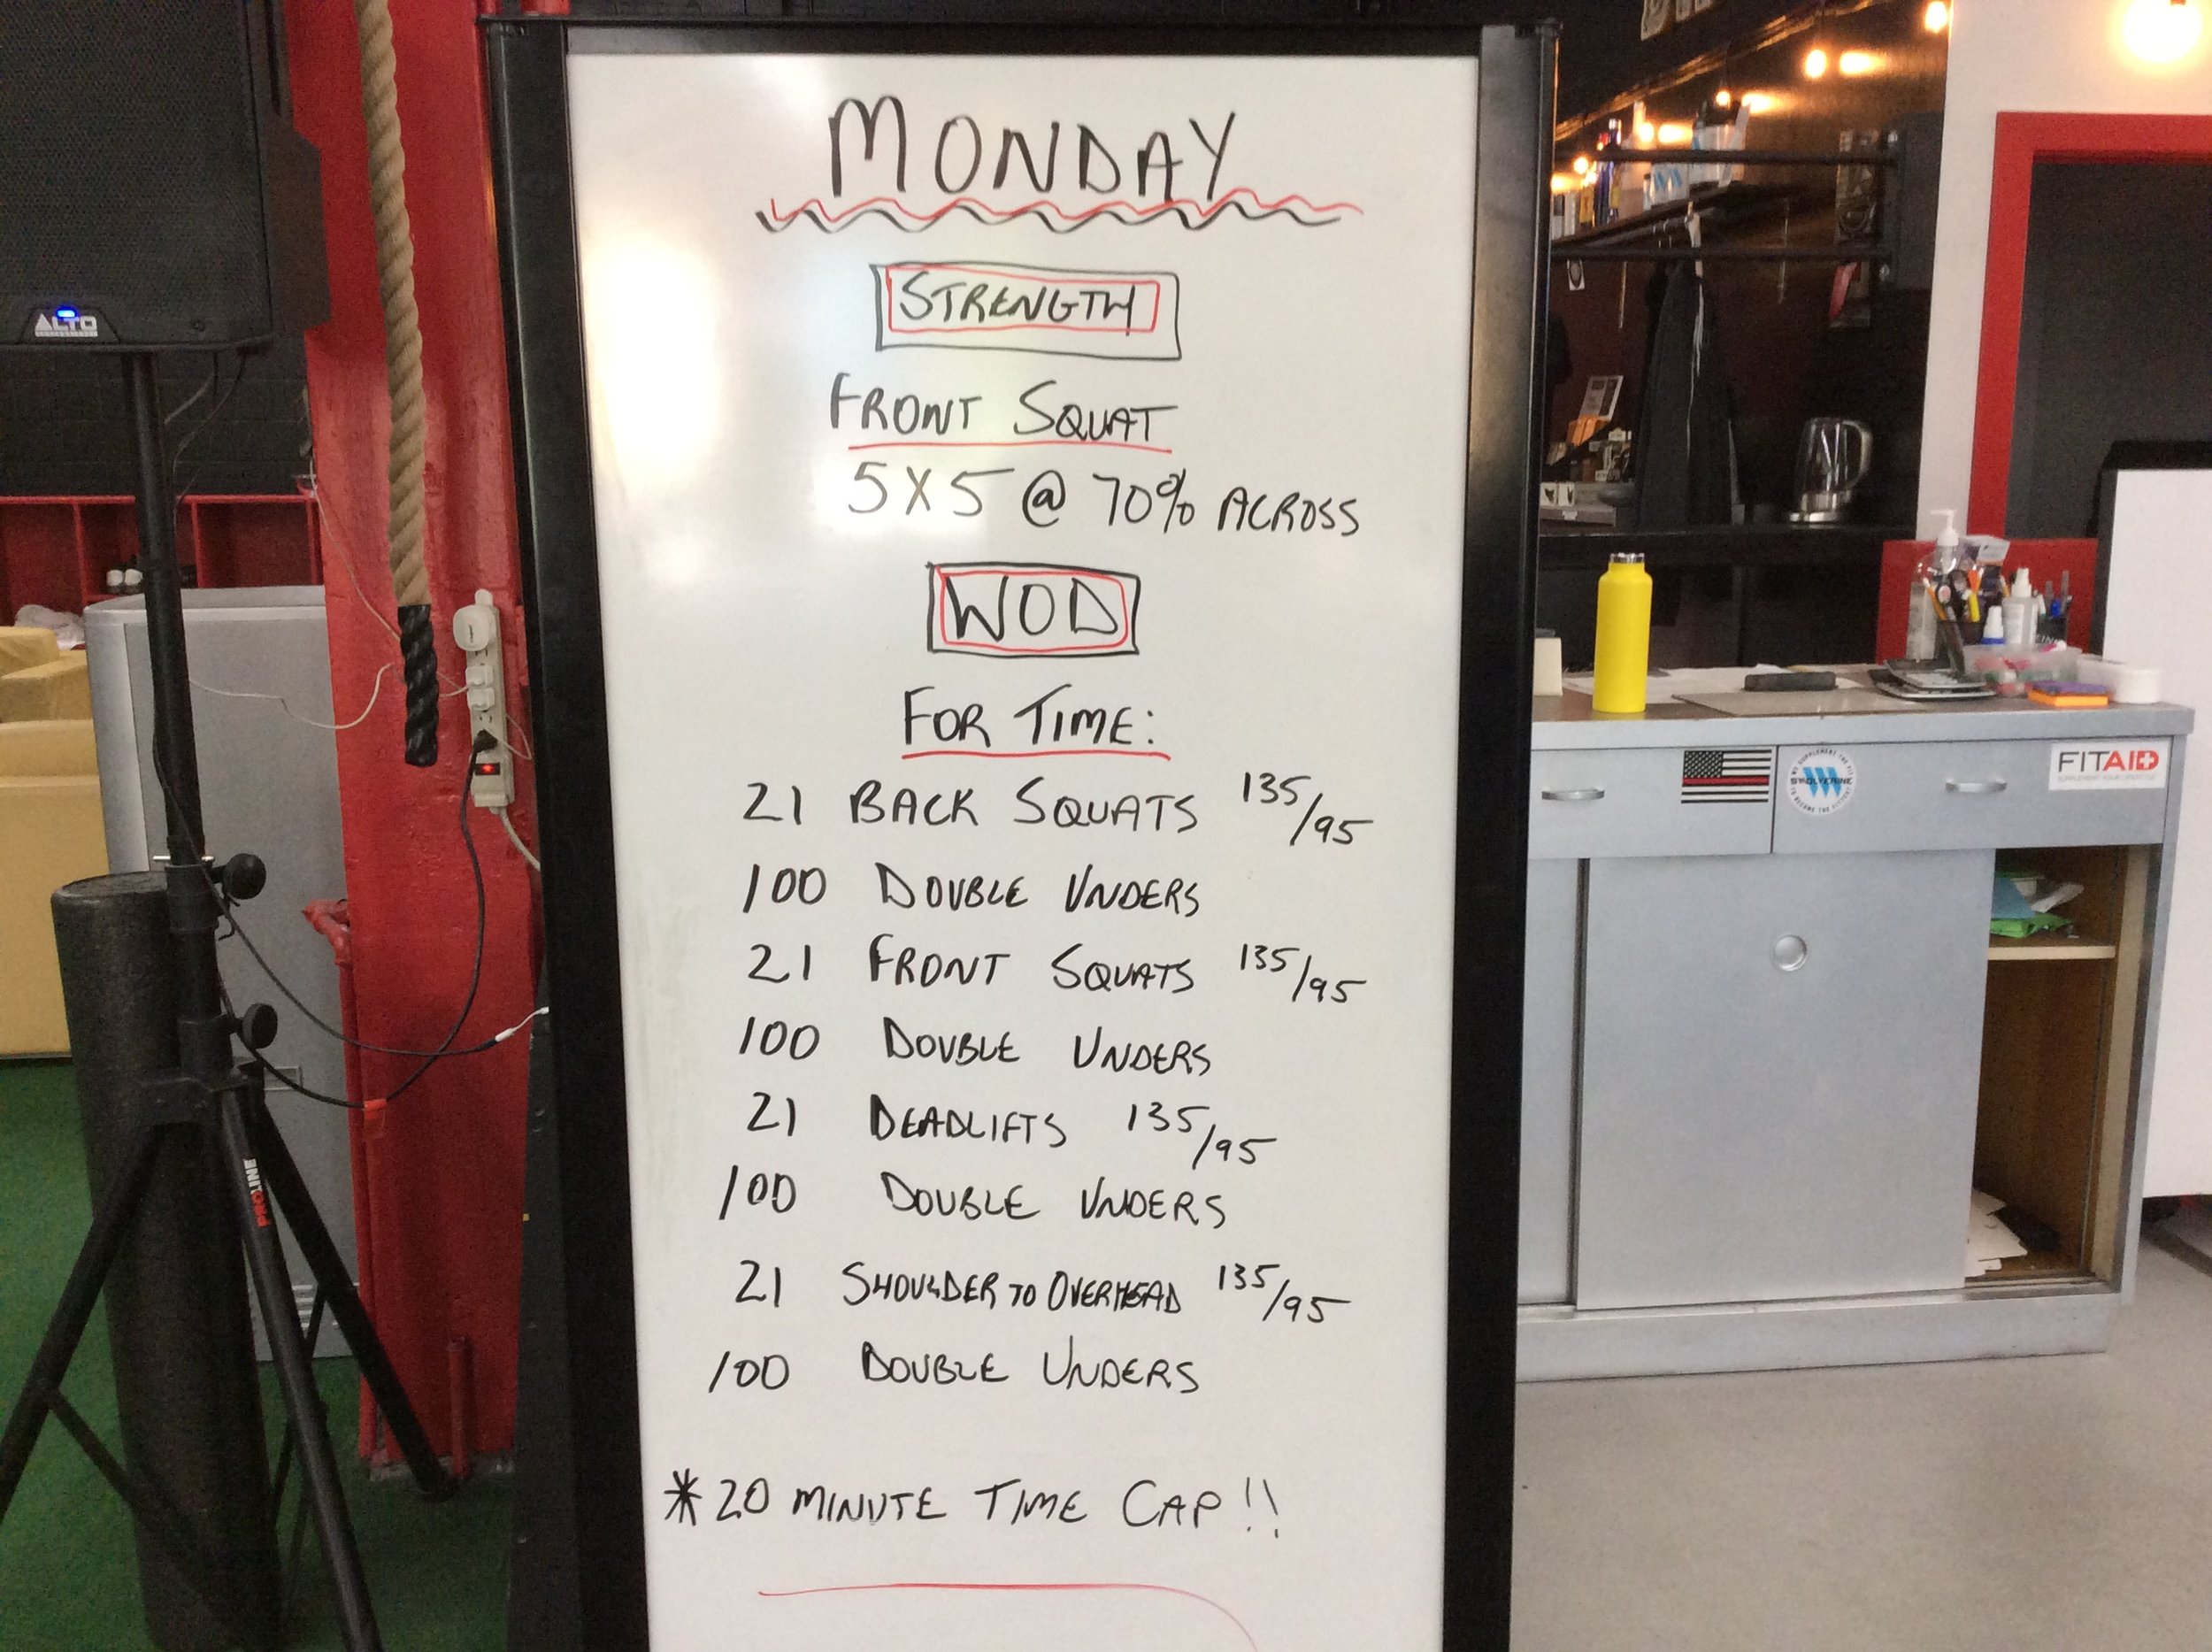 MONDAY
STRENGTH
FRONT SQUAT
5 X 5 @ 70% ACROSS
WOD
FOR TIME:
21 BACK SQUATS 135/95
100 DOUBLE UNDERS
21 FRONT SQUATS 135/95
100 DOUBLE UNDERS
21 DEADLIFTS 135/95
100 DOUBLE UNDERS
21 SHOULDER TO OVERHEAD 135/95
100 DOUBLE UNDERS
*20 MINUTE TIME CAP!!
ALTO
PROLINE
SWOLVERINE
FITAID